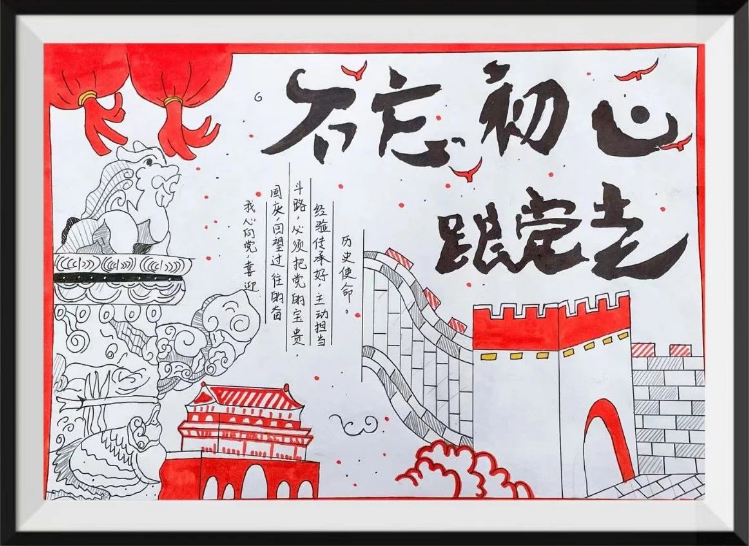 不忘初心
跟党走
我心向党,喜迎
国庆,回望过往的奋
斗路,必须把党的宝贵
经验传承好,主动担当
历史使命。